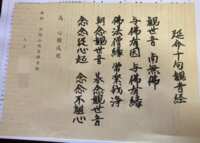 延命十句観音経
観世音 南無佛
与佛有因 与佛有縁
佛法僧縁 常楽我浄
朝念観世音 暮念観世音
念念従心起 念念不離心
為 心願成就